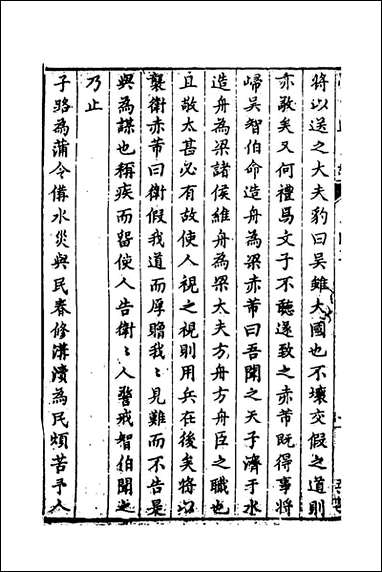 將以送之大夫豹曰吳雖大國也不壞交假之道則
亦敬矣又何禮焉文子不聽遂致之赤芾既得事將
歸吳智伯命造舟為梁赤芾曰吾聞之天子濟于水
造舟為梁諸侯維舟為梁大夫方舟方舟臣之職也
且敬太甚必有故使人視之視則用兵在後矣將以
襲衛赤芾曰衛假我道而厚贈我〻見難而不告是
與為謀也稱疾而留使人告衛〻人警戒智伯聞之
乃止
子路為蒲令備水災與民春修溝瀆為民煩苦予人